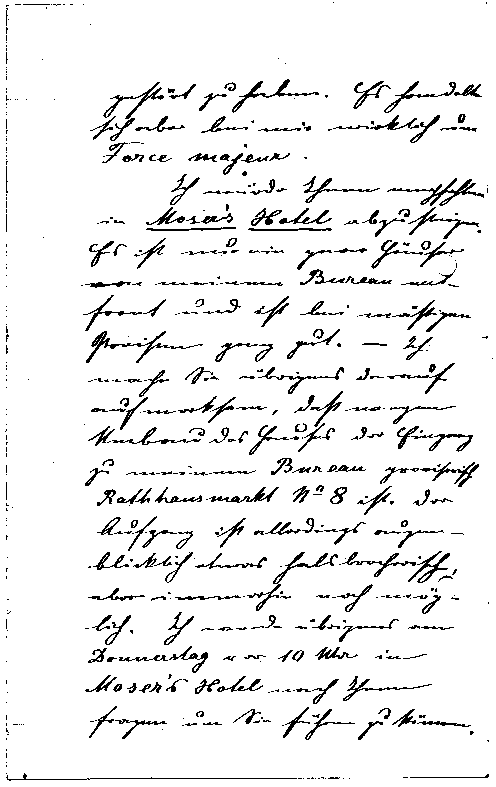 gestört zu haben. Es handelte
sich aber bei mir wirklich um
Force majeur.
Ich würde Ihnen empfehlen
in Moser's Hotel abzusteigen.
Es ist nur ein paar Häuser
von meinem Bureau ent-
fernt und ist bei mäßigen
Preisen ganz gut. — Ich
mache Sie übrigens darauf
aufmerksam, daß wegen
Umbau des Hauses der Eingang
zu meinem Bureau provisorisch
Rathhausmarkt No 8 ist. Der
Aufgang ist allerdings augen-
blicklich etwas halsbrecherisch,
aber immerhin noch mög-
lich. Ich werde übrigens am
Donnerstag vor 10 Uhr in
Moser's Hotel nach Ihnen
fragen um Sie führen zu können.